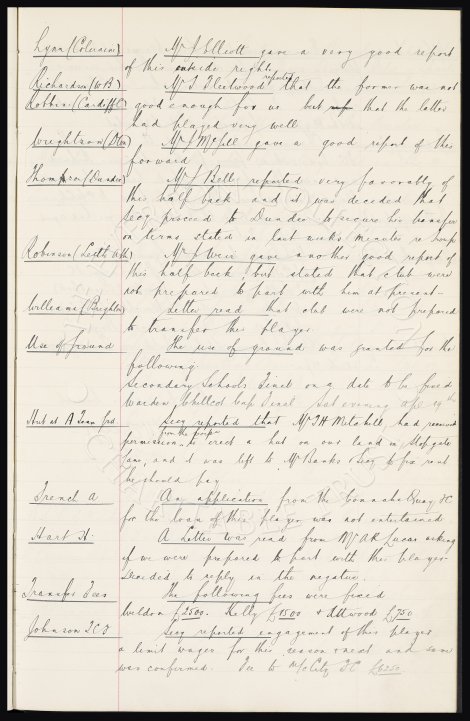 Lynn (Coleraine) Mr J Elliott gave a very good report
of this outside right
Richardson (W B) Mr T Fleetwood reported that the former was not
Robbins (Cardiff C) good enough for us but that the latter
had played very well
Wrightson Mr J gave a good report of this
forward
Thomson (Dundee) Mr J Bell reported very favorably of
this half back and it was decided that
Secy proceed to Dundee to secure his transfer
on terms stated in last weeks minutes re
Robinson (Leith Ath) Mr J Weir gave another good report of
this half back but stated that club were
not prepared to part with him at present -
Williams (Brighton) Letter read that club were not prepared
to transfer this player.
Use of ground The use of ground was granted for the
following
Secondary Schools Final on a date to be fixed
Cup Final Sat evening
Hut at A Team Grd Secy reported that Mr T H Mitchell had received
permission from the to erect a hut on our land in
Lane, and it was left to Mr Banks & Secy to fix rent
he should pay
French A An application from the Connahs Quay FC
for the loan of this player was not entertained
Hart H. A Letter was read from Mr A R Lucas asking
if we were prepared to part with this player
Decided to reply in the negative.
Transfer Fees The following fees were fixed
Weldon £2500. Kelly £1500 & Attwood £750
Johnson T C F Secy reported engagement of this player
a limit wages for this season & next and same
was confirmed. Fee to M/c City FC £6250